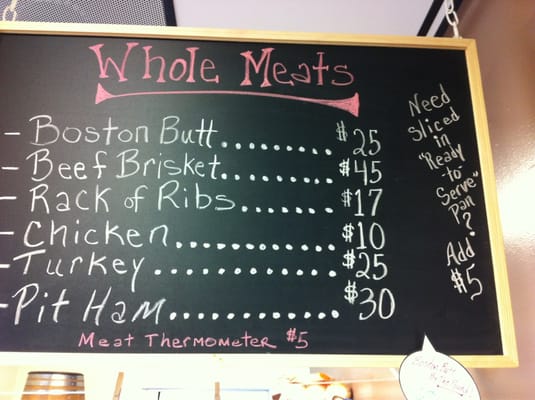 Whole Meats
- Boston Butt......... $25
- Beef Brisket......... $45
- Rack of Ribs....... $17
- Chicken............ $10
- Turkey............. $25
- Pit Ham............ $30
Meat Thermometer $5
Need
Sliced
in
"Ready
-to-
Serve"
Pan
?
Add
$5
Boston Butt